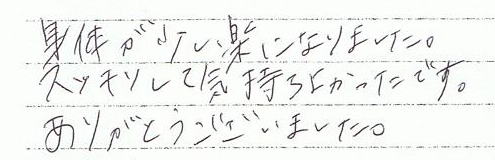 身体が少し楽になりました。
スッキリして気持ちよかったです。
ありがとうございました。